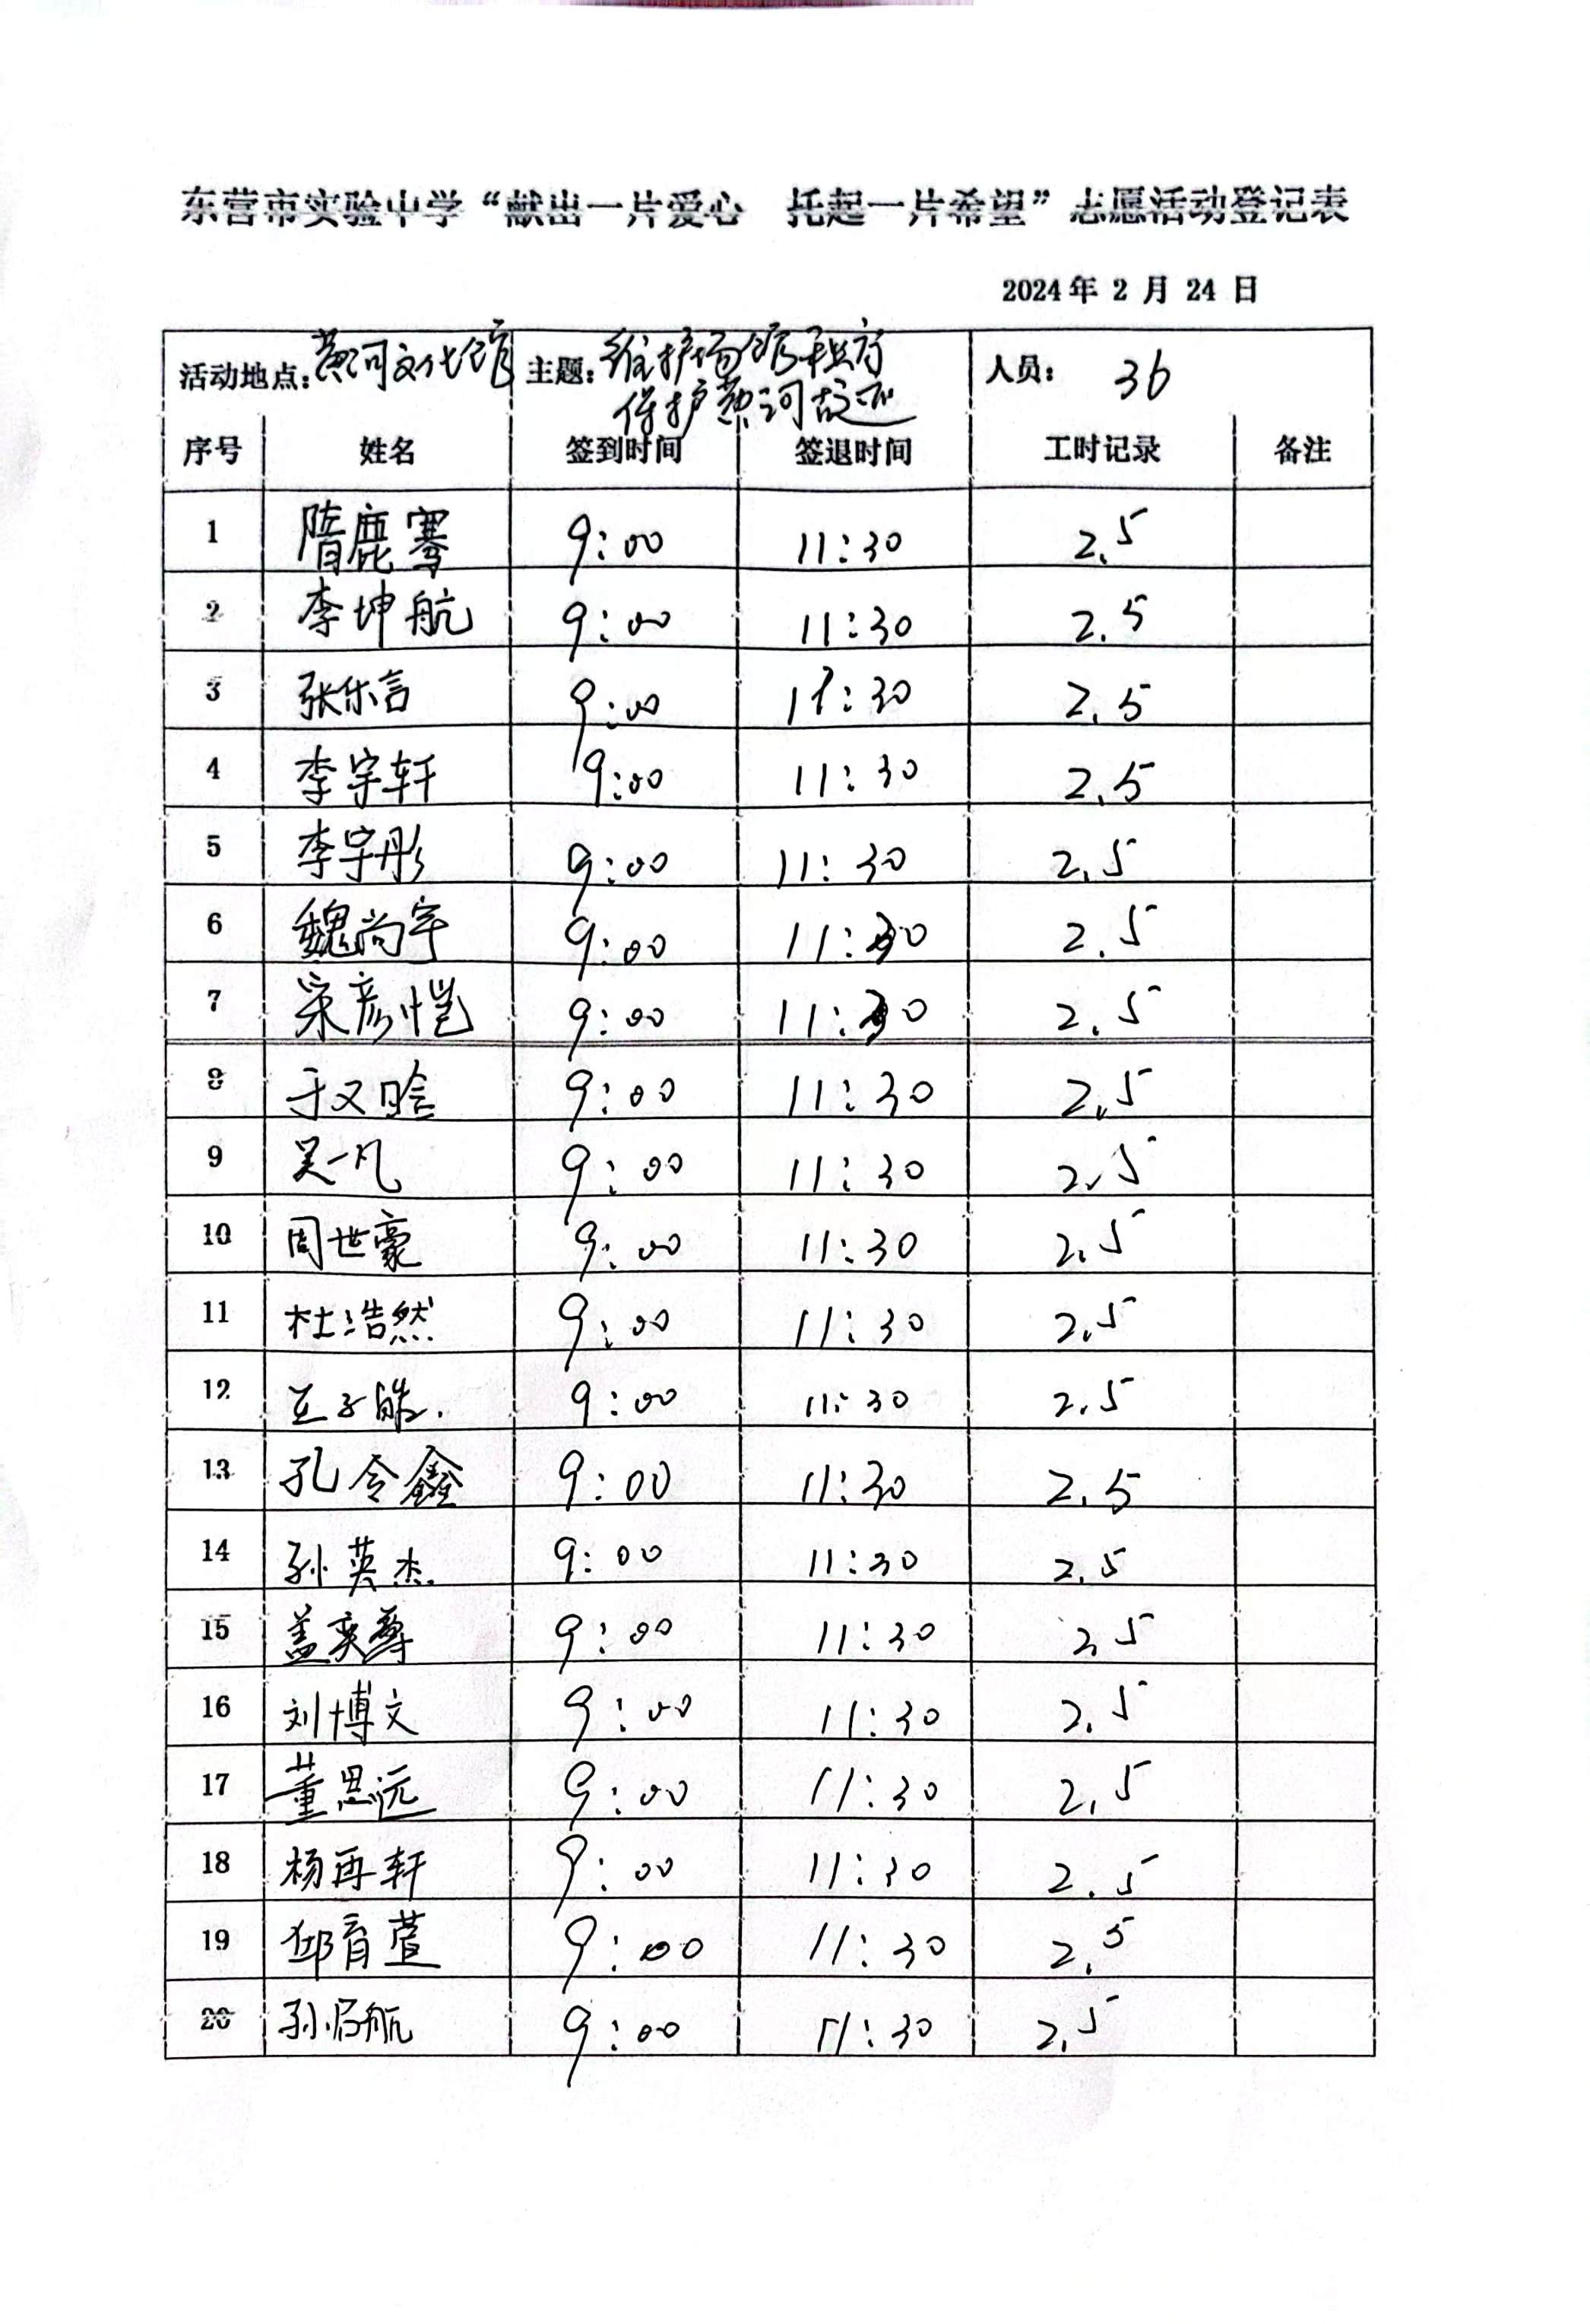 东营市实验中学“献出一片爱心 托起一片希望”志愿活动登记表
2024年 2 月 24 日
活动地点: 黄河文化馆 主题: 维护场馆秩序 保护黄河故迹 人员: 36
序号 姓名 签到时间 签退时间 工时记录 备注
1 隋鹿骞 9:00 11:30 2.5
2 李坤航 9:00 11:30 2.5
3 张乐言 9:00 11:30 2.5
4 李宇轩 9:00 11:30 2.5
5 李宇彤 9:00 11:30 2.5
6 魏尚宇 9:00 11:30 2.5
7 宋彦恺 9:00 11:30 2.5
8 于又晗 9:00 11:30 2.5
9 吴一凡 9:00 11:30 2.5
10 周世豪 9:00 11:30 2.5
11 杜浩然 9:00 11:30 2.5
12 9:00 11:30 2.5
13 孔令鑫 9:00 11:30 2.5
14 孙英杰. 9:00 11:30 2.5
15 盖奕尊 9:00 11:30 2.5
16 刘博文 9:00 11:30 2.5
17 董思远 9:00 11:30 2.5
18 杨再轩 9:00 11:30 2.5
19 邱育萱 9:00 11:30 2.5
20 9:00 11:30 2.5